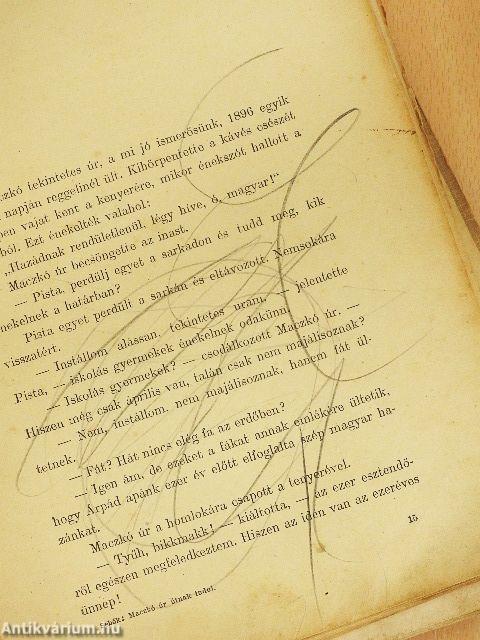 czkó tekintetes úr, a mi jó ismerősünk, 1896 egyik
napján reggelinél ült. Kihörpentette a kávés csészét
pen vajat kent a kenyerére, mikor énekszót hallott a
ból. Ezt énekelték valahol:
„Hazádnak rendületlenűl, légy híve, ó, magyar!"
Maczkó úr becsöngette az inast.
— Pista, perdülj egyet a sarkadon és tudd meg, kik
nekelnek a határban?
Pista egyet perdült a sarkán és eltávozott. Nemsokára
visszatért.
— Instállom alássan, tekintetes uram, — jelentette
Pista, — iskolás gyermekek énekelnek odakünn.
— Iskolás gyermekek? — csodálkozott Maczkó úr. —
Hiszen még csak április van, talán csak nem majálisoznak?
— Nem, instállom, nem majálisoznak, hanem fát ül-
tetnek.
— Fát? Hát nincs elég fa az erdőben?
— Igen ám, de ezeket a fákat annak emlékére ültetik,
hogy Árpád apánk ezer év előtt elfoglalta szép magyar ha-
zánkat.
Maczkó úr a homlokára csapott a tenyerével.
— Tyűh, bikkmakk! — kiáltotta, — az ezer esztendő-
ről egészen megfeledkeztem. Hiszen az idén van az ezeréves
ünnep!
Sebők: Maczkó úr útnak indul.
15
Antikvárium.hu